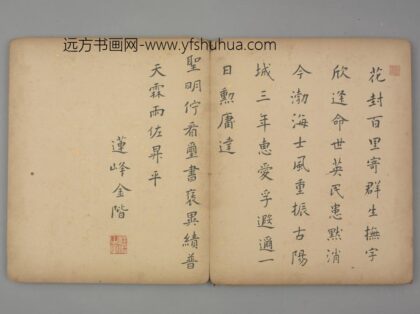 远方书画网-www.yfshuhua.com
花封百里寄群生撫字
欣逢命世英民恚默消
今渤海士風重振古陽
城三年惠愛孚遐邇一
日勲庸達
聖明佇看璽書褒異績普
天霖雨佐昇平
蓮峰金階